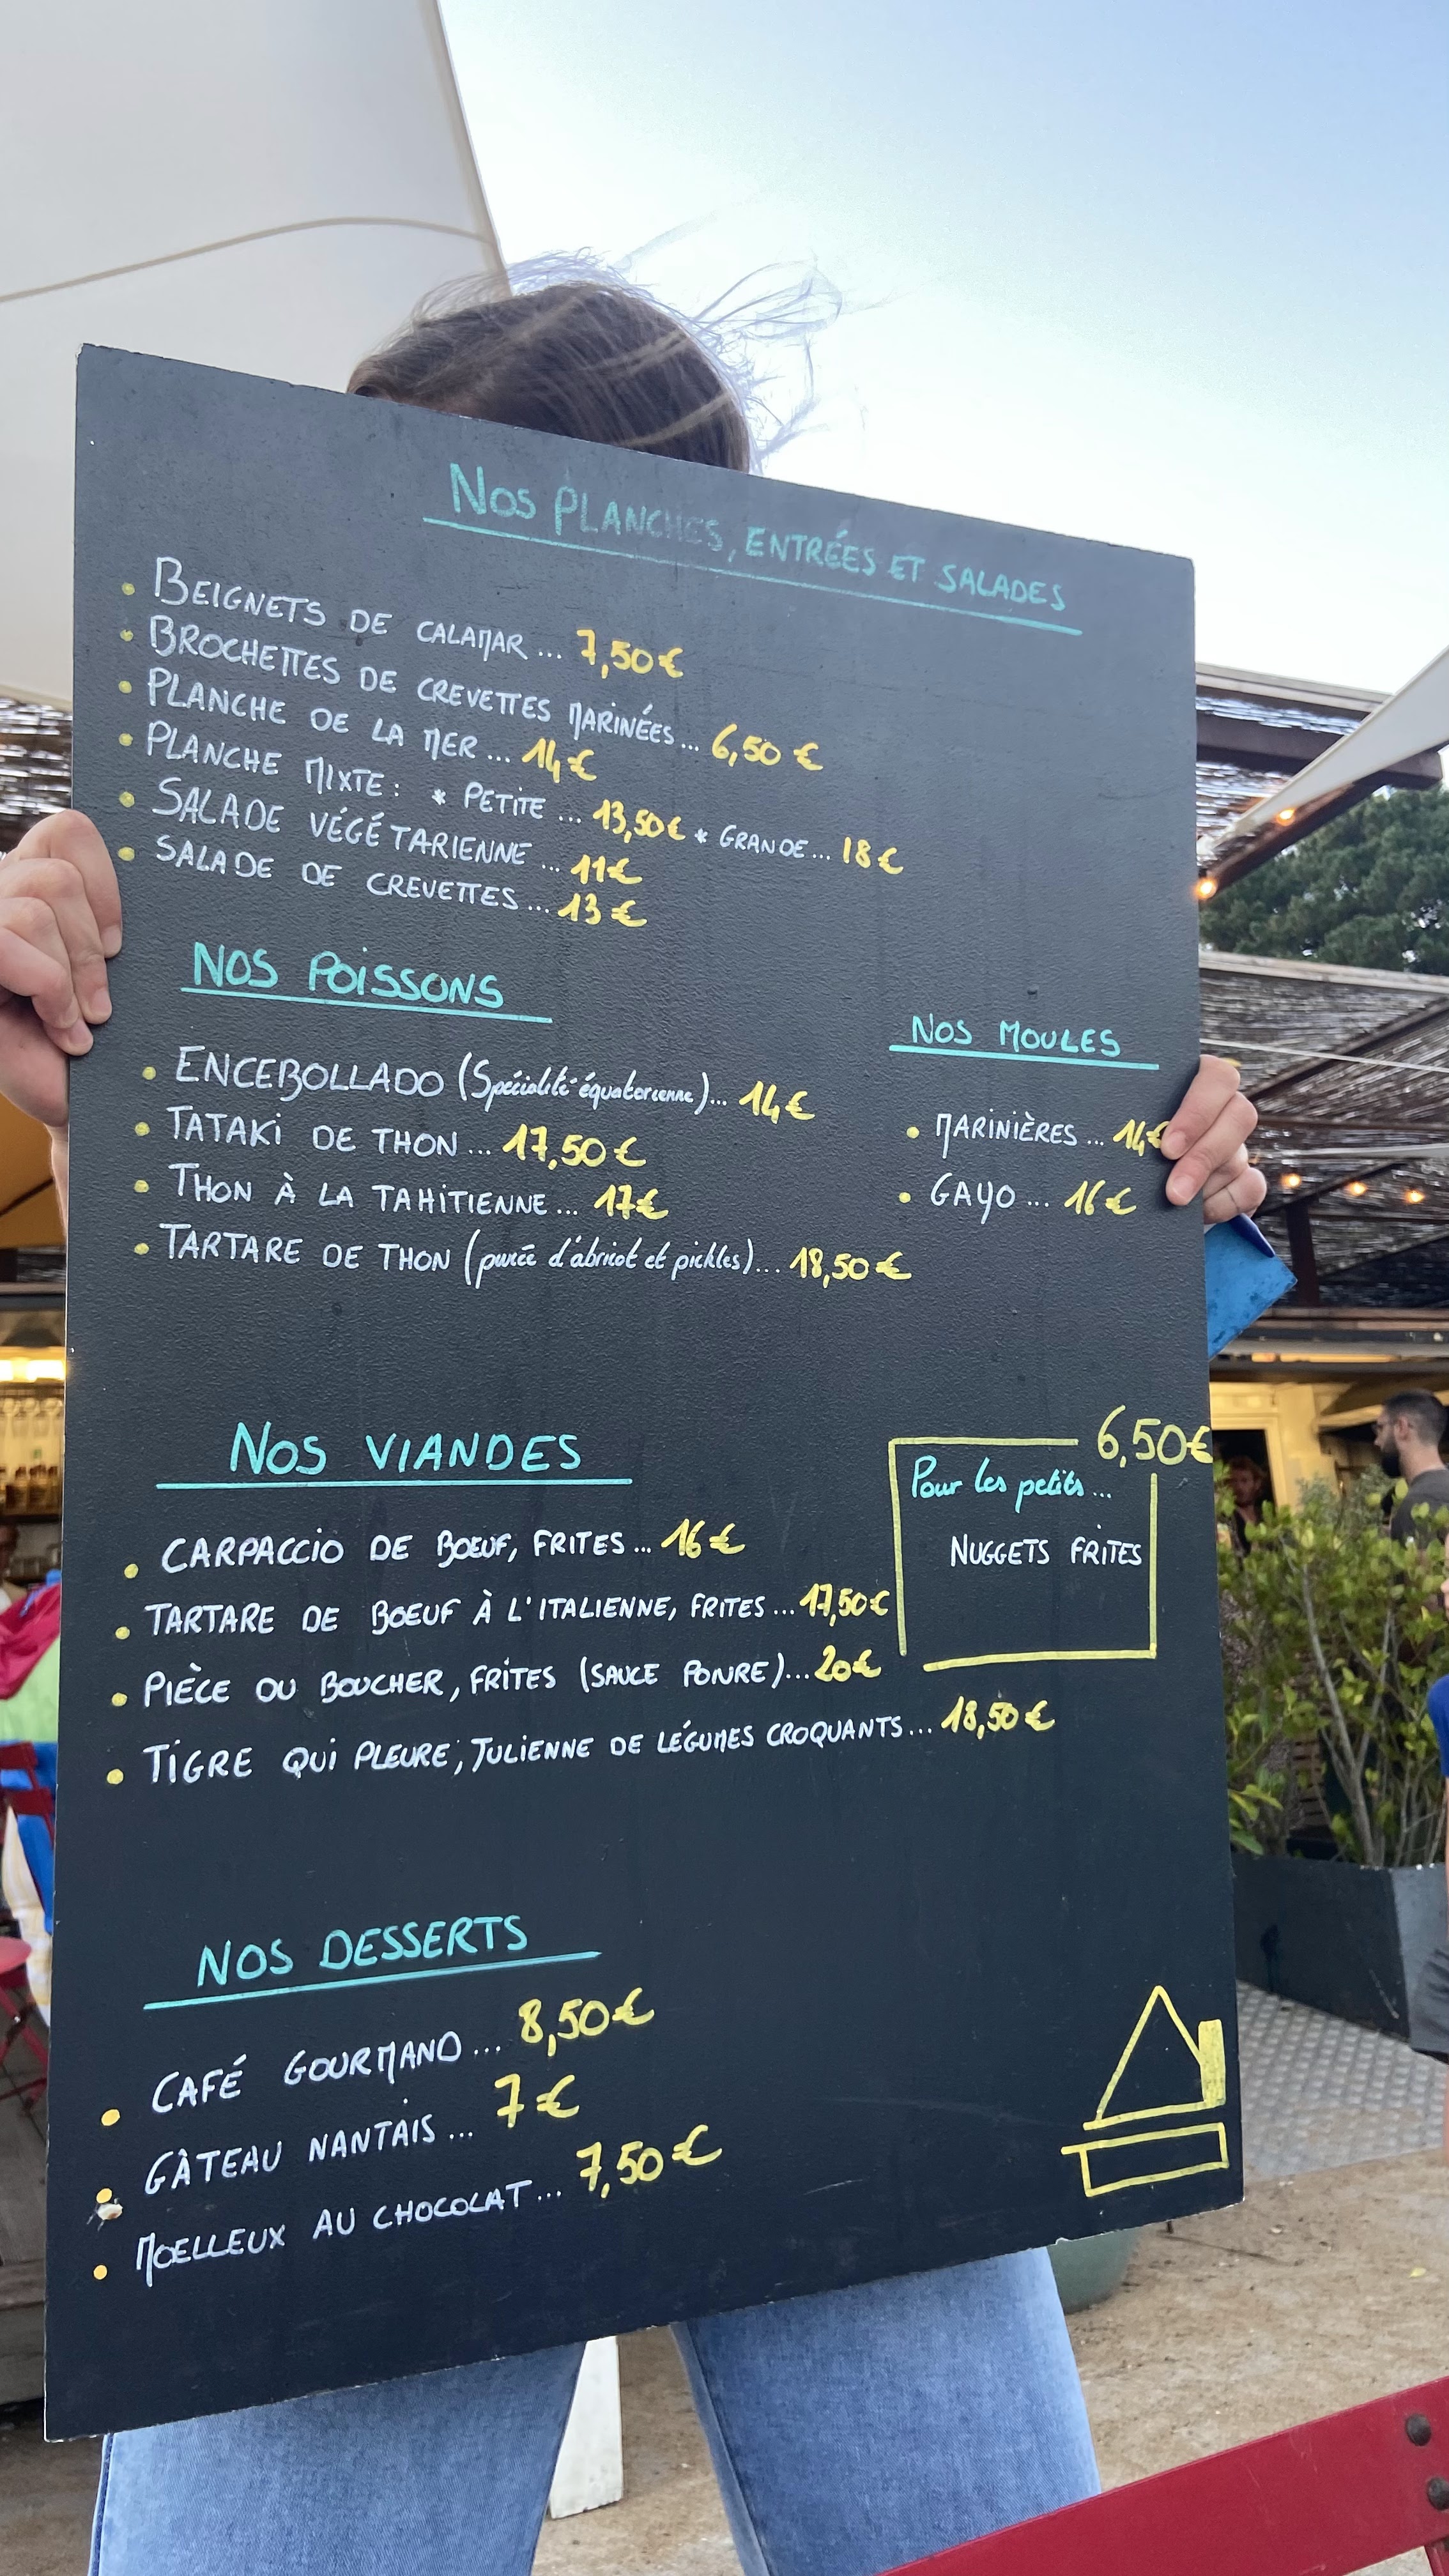 NOS PLANCHES, ENTRÉES ET SALADES
BEIGNETS DE CALAMAR ... 7,50€
BROCHETTES DE CREVETTES MARINÉES ... 6,50€
PLANCHE DE LA MER ... 14€
PLANCHE MIXTE : * PETITE ... 13,50€ * GRANDE ... 18€
SALADE VÉGÉTARIENNE ... 11€
SALADE DE CREVETTES ... 13€
NOS POISSONS
ENCEBOLLADO (Spécialité équatorienne) ... 14€
TATAKI DE THON ... 17,50€
THON À LA TAHITIENNE ... 17€
TARTARE DE THON (purée d'abricot et pickles) ... 18,50€
NOS MOULES
MARINIÈRES ... 14€
GAYO ... 16€
NOS VIANDES
CARPACCIO DE BOEUF, FRITES ... 16€
TARTARE DE BOEUF À L'ITALIENNE, FRITES ... 17,50€
PIÈCE DU BOUCHER, FRITES (SAUCE POIVRE) ... 20€
TIGRE QUI PLEURE, JULIENNE DE LÉGUMES CROQUANTS ... 18,50€
6,50€
Pour les petits ...
NUGGETS FRITES
NOS DESSERTS
CAFÉ GOURMAND ... 8,50€
GÂTEAU NANTAIS ... 7€
MOELLEUX AU CHOCOLAT ... 7,50€